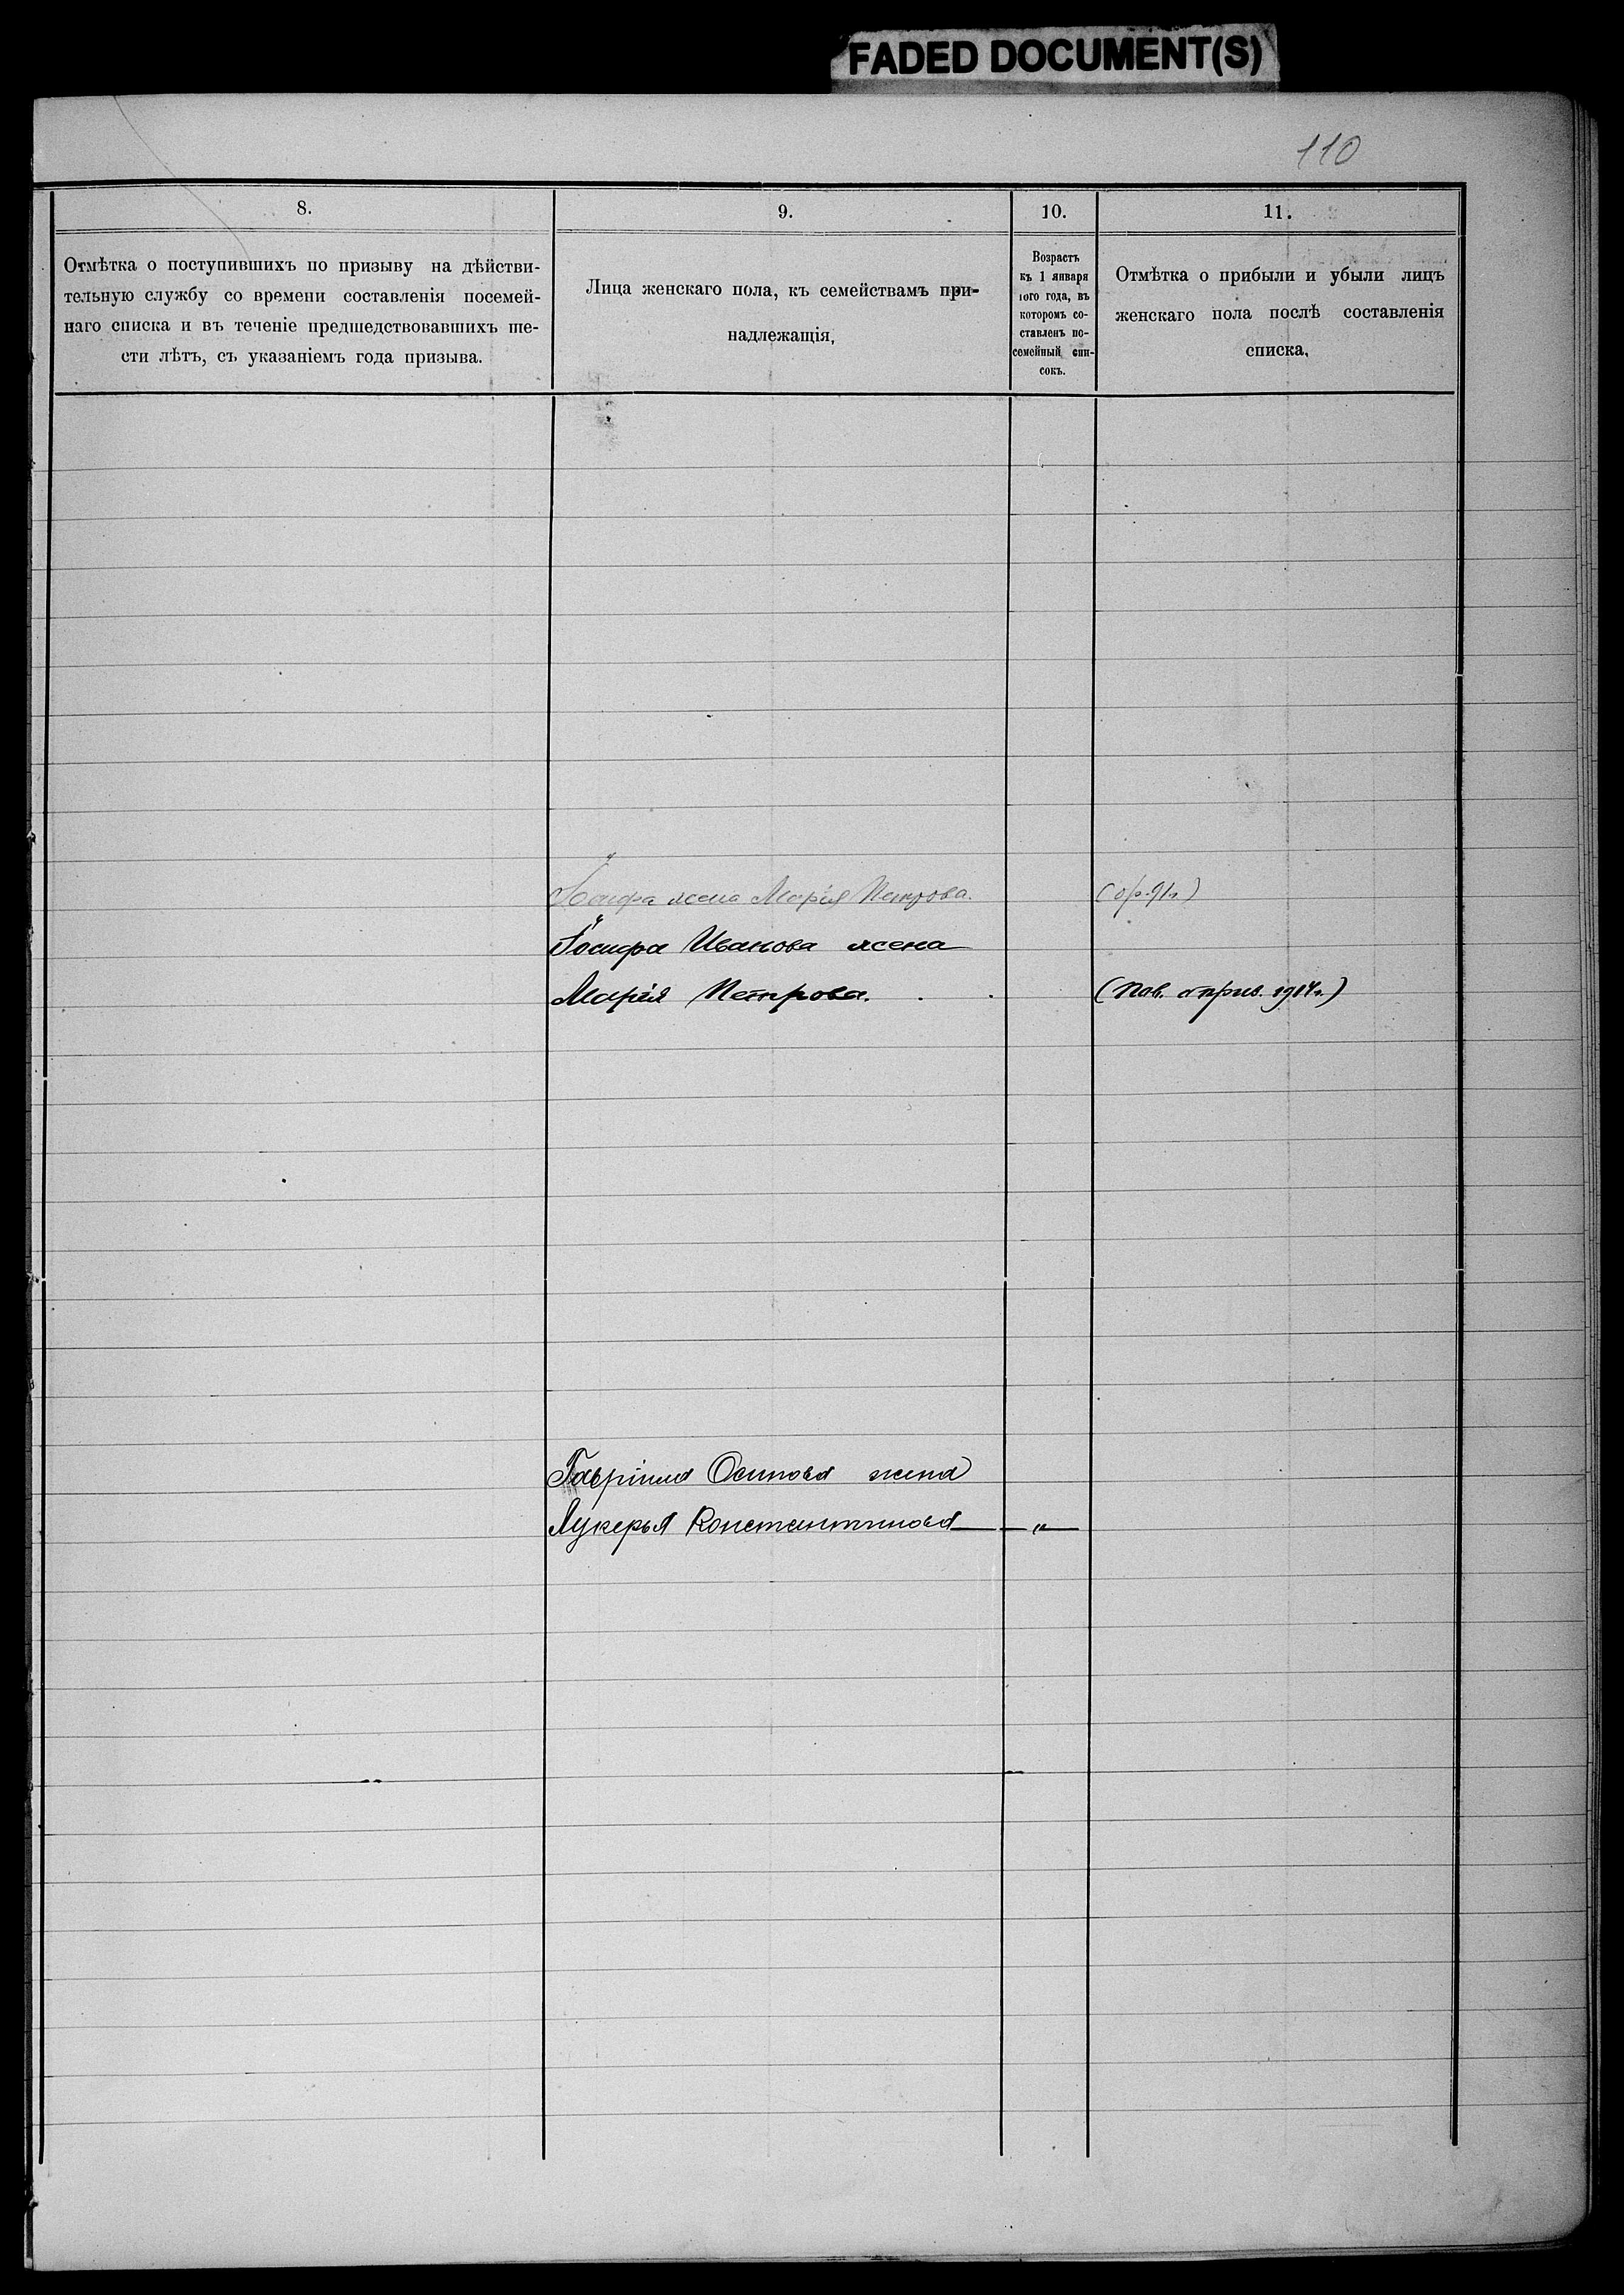 FADED DOCUMENT(S)
110
8.
Отмѣтка о поступившихъ по призыву на дѣйстви-
тельную службу со времени составленія посемей-
наго списка и въ теченіе предшедствовавшихъ ше-
сти лѣтъ, съ указаніемъ года призыва.
9.
Лица женскаго пола, къ семействамъ при-
надлежащія,
10.
Возрастъ
къ 1 января
того года, въ
которомъ со-
ставленъ по-
семейный спи-
сокъ.
11.
Отмѣтка о прибыли и убыли лицъ
женскаго пола послѣ составленія
списка,
Іосифа жена Марія Петрова.
Іосифа Иванова жена
Марія Петрова.
(Пов. 1914 г.)
Гавріила Осипова жена
Лукерья Константинова — „ —